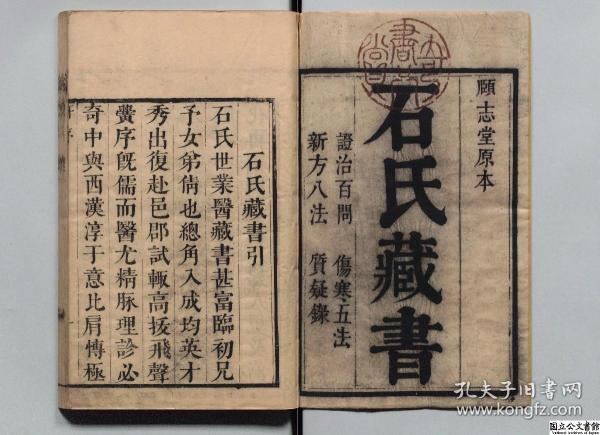 願志堂原本
石氏藏書
證治百問 傷寒五法
新方八法 質疑錄
石氏藏書引
石氏世業醫藏書甚富臨初兄
予女弟倩也總角入成均英才
秀出復赴邑郡試輒高拔飛聲
黌序既儒而醫尤精脉理診必
奇中與西漢淳于意比肩愽極
孔夫子旧书网
www.kongfz.com
国立公文書館
National Archives of Japan